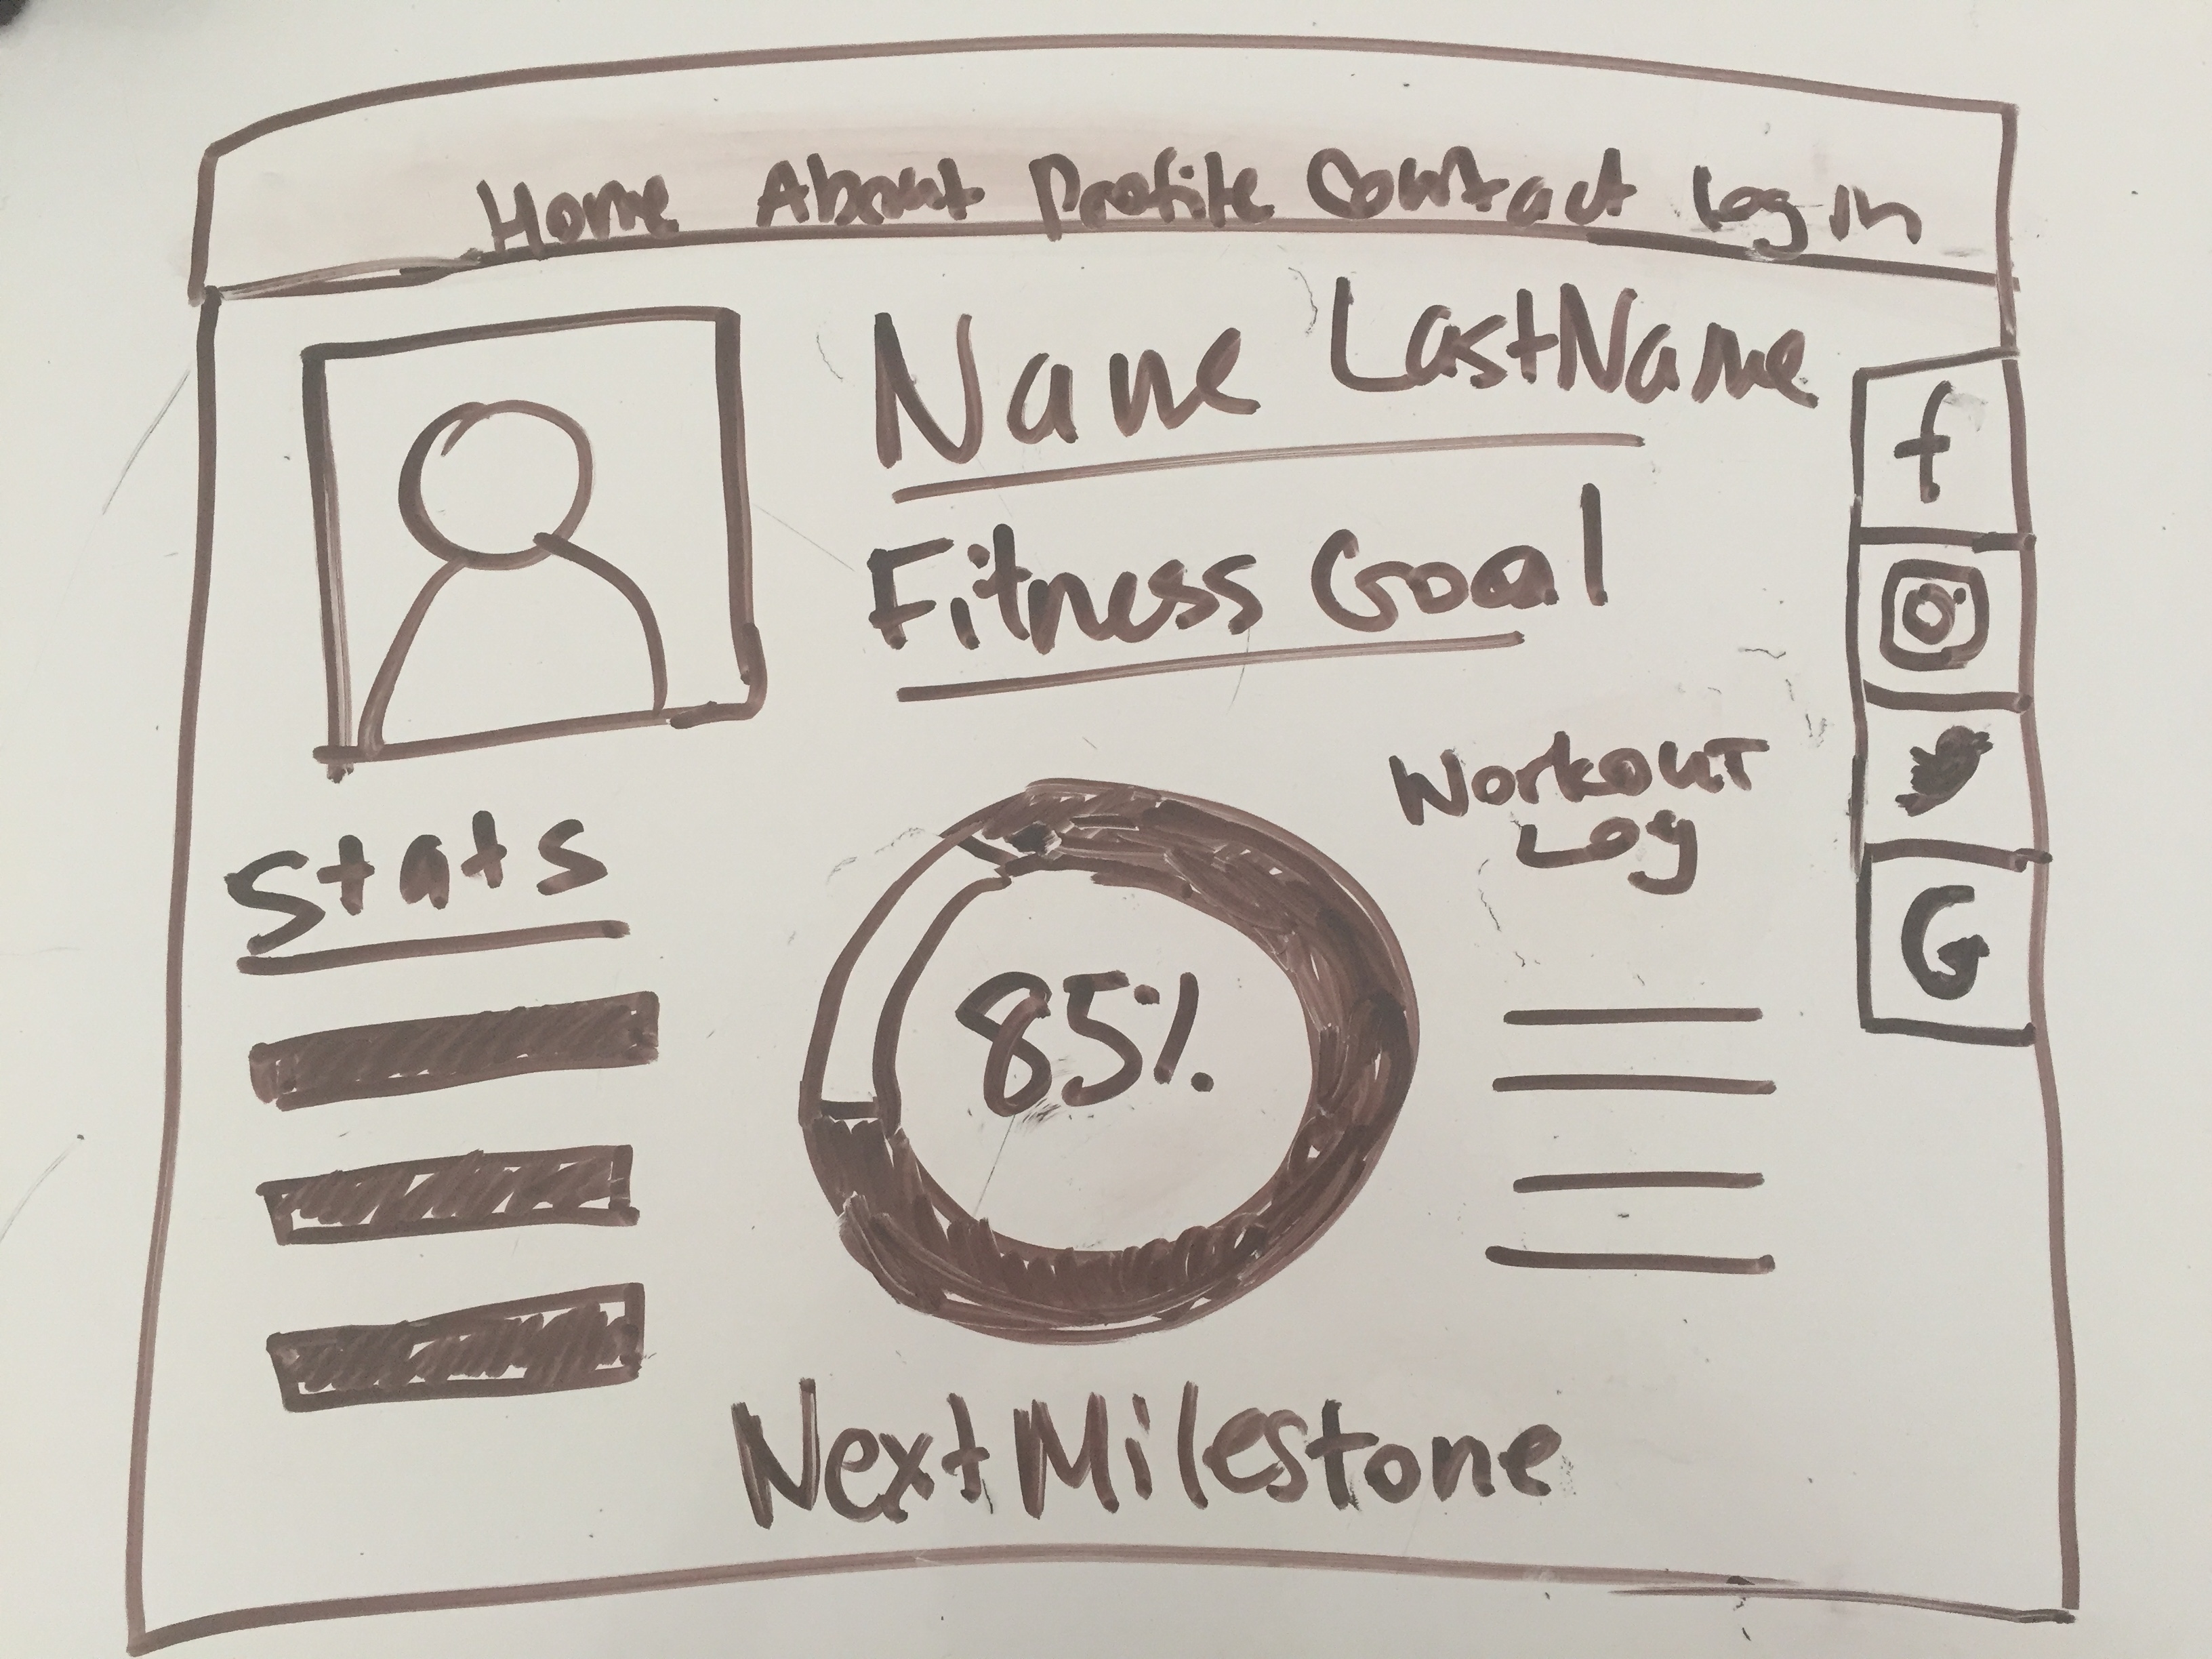 Home About Profile Contact Log in
Name LastName
f
Fitness Goal
Workout
Log
Stats
G
85%
Next Milestone